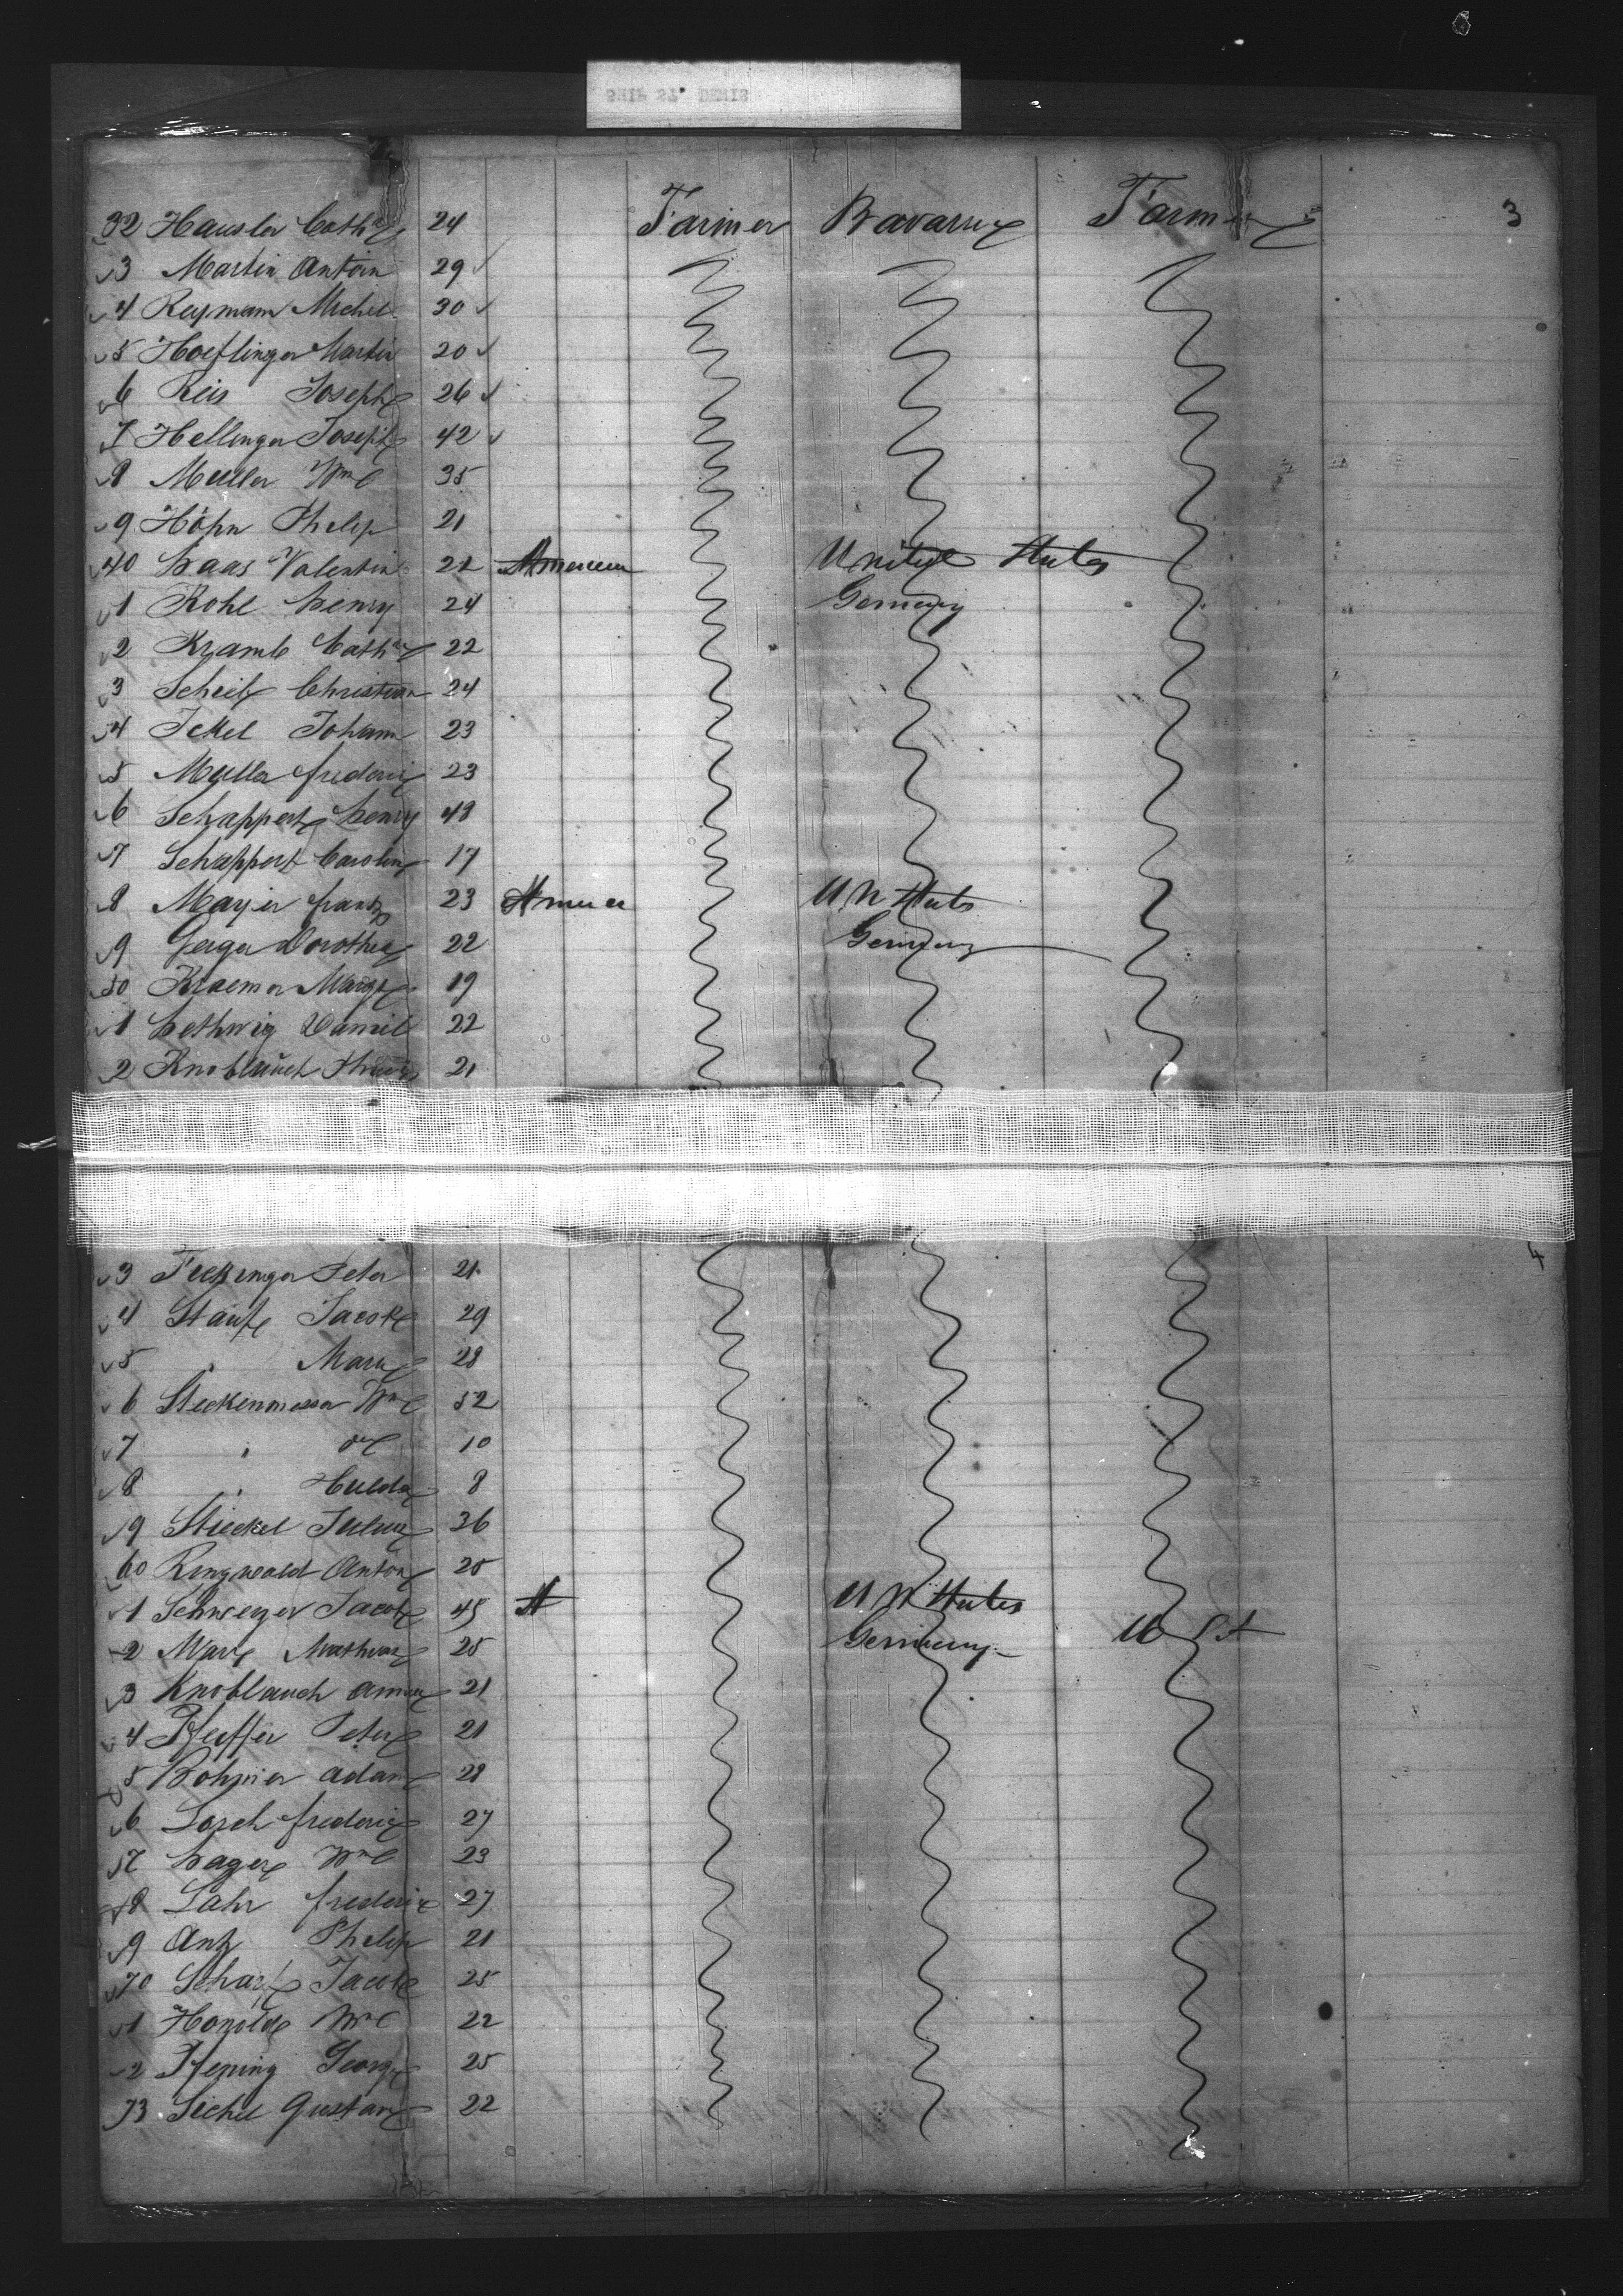 SHIP ST. DENIS
32 Hausler Cath 24 Farmer Bavaria Farmer 3
3 Martin Antoin 29
4 Reymann Michel 30
5 Hoeflinger Martin 20
6 Reis Joseph 26
7 Hellinger Joseph 42
8 Muller Wm 35
9 Höhn Philip 21
40 Haas Valentin 21 American United States
1 Kohl Henry 24 Germany
2 Kramb Cath 22
3 Scheib Christian 24
4 Ickel Johann 23
5 Muller frederic 23
6 Schappert Henry 48
7 Schappert Carolin 17
8 Mayer frantz 23 America Un States
9 Geiger Dorothea 22 Germany
50 Kraemer Margt 19
1 Hethwig Daniel 22
2 Knoblauch 21
4
3 Peter 21
4 Stauf Jacob 29
5 " Maria 28
6 Steckenmesser Wm 52
7 " do 10
8 " Hulda 8
9 Stieckel 36
60 Ringwald Anton 25
1 Schweizer Jacob 45 A Un States
2 Marx 25 Germany U St
3 Knoblauch Anna 21
4 Pfeiffer Peter 21
5 Bohmer Adam 28
6 Lorch frederic 27
7 Hager Wm 23
8 Lahr frederic 27
9 Antz Philip 21
70 Scharf Jacob 25
1 Honold Wm 22
2 Pfening George 25
73 Sichel Gustav 22